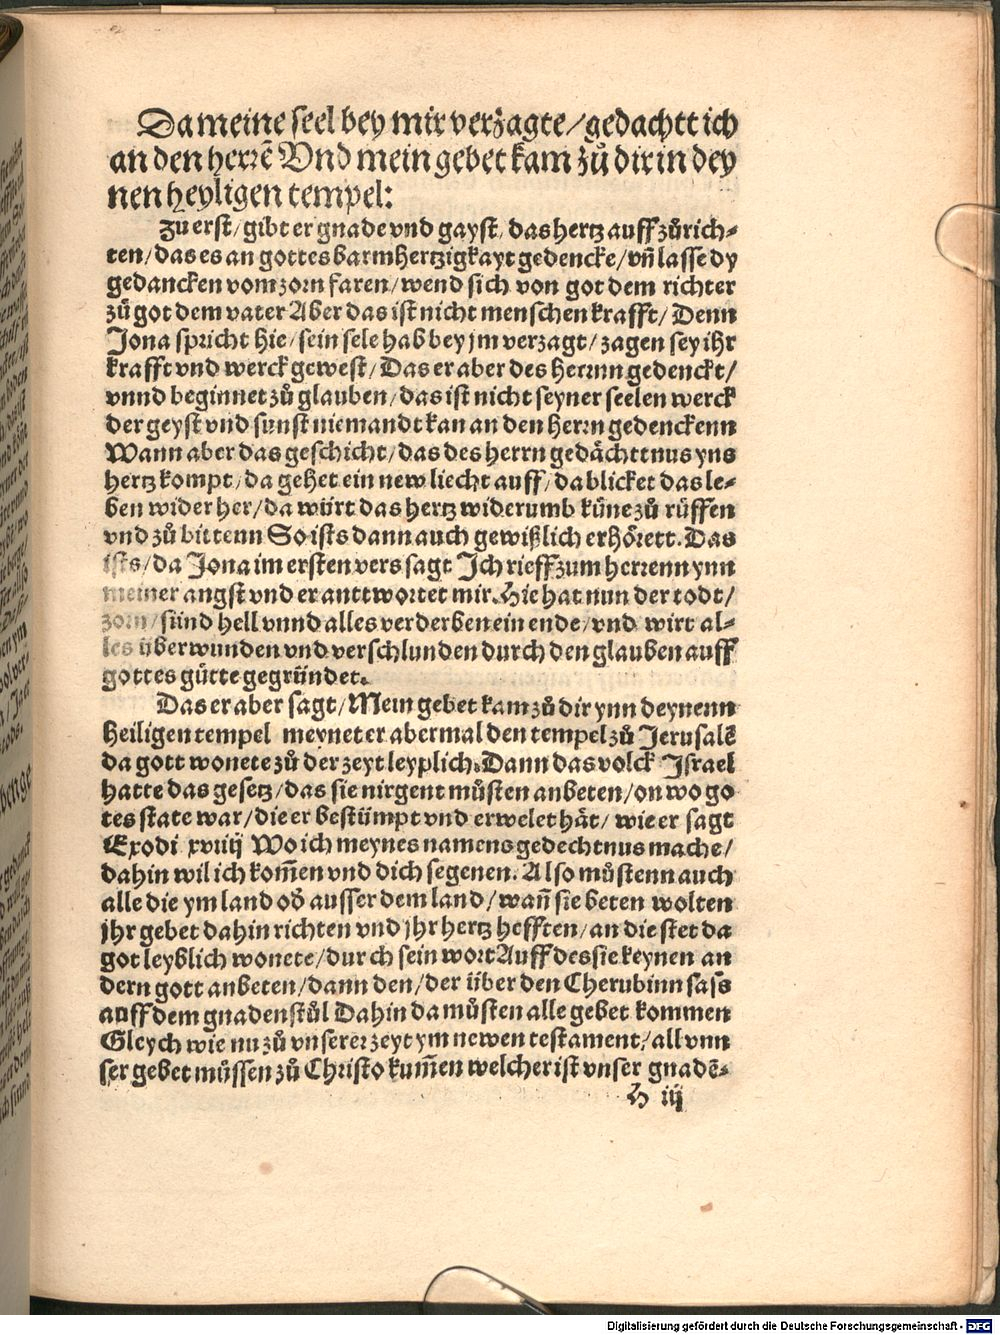 Da meine seel bey mir verzagte/gedachtt ich
an den herrē Vnd mein gebet kam zů dir in dey
nen heyligen tempel:
Zu erst/gibt er gnade vnd gayst, das hertz auff zůrich-
ten/das es an gottes barmhertzigkayt gedencke/vñ lasse dy
gedancken vom zorn faren/wend sich von got dem richter
zů got dem vater Aber das ist nicht menschen krafft/Denn
Jona spricht hie/sein sele hab bey jm verzagt/zagen sey ihr
krafft vnd werck gewest/Das er aber des herrnn gedenckt/
vnnd beginnet zů glauben/das ist nicht seyner seelen werck
der geyst vnd sunst niemandt kan an den herrn gedenckenn
Wann aber das geschicht/das des herrn gedächttnus yns
hertz kompt/da gehet ein new liecht auff/da blicket das le-
ben wider her/da würt das hertz widerumb küne zů rüffen
vnd zů bittenn So ists dann auch gewißlich erhörett. Das
ists/da Jona im ersten vers sagt Ich rieff zum herrenn ynn
meiner angst vnd er anttwortet mir. Hie hat nun der todt/
zorn/sünd hell vnnd alles verderben ein ende/vnd wirt al-
les überwunden vnd verschlunden durch den glauben auff
gottes gütte gegründet.
Das er aber sagt/Mein gebet kam zů dir ynn deynenn
heiligen tempel meynet er abermal den tempel zů Jerusalē
da gott wonete zů der zeyt leyplich. Dann das volck Israel
hatte das gesetz/das sie nirgent můsten anbeten/on wo go
tes state war/die er bestümpt vnd erwelet hät/wie er sagt
Exodi xviiij Wo ich meynes namens gedechtnus mache/
dahin wil ich kom̄en vnd dich segenen. Also můstenn auch
alle die ym land od̄ ausser dem land/wañ sie beten wolten
jhr gebet dahin richten vnd jhr hertz hefften/an die stet da
got leyblich wonete/durch sein wort Auff des sie keynen an
dern gott anbeten/dann den/der über den Cherubinn sass
auff dem gnadenstůl Dahin da můsten alle gebet kommen
Gleych wie nu zů vnserer zeyt ym newen testament/all vnn
ser gebet müssen zů Christo kum̄en welcher ist vnser gnadē-
H iij
Digitalisierung gefördert durch die Deutsche Forschungsgemeinschaft - DFG